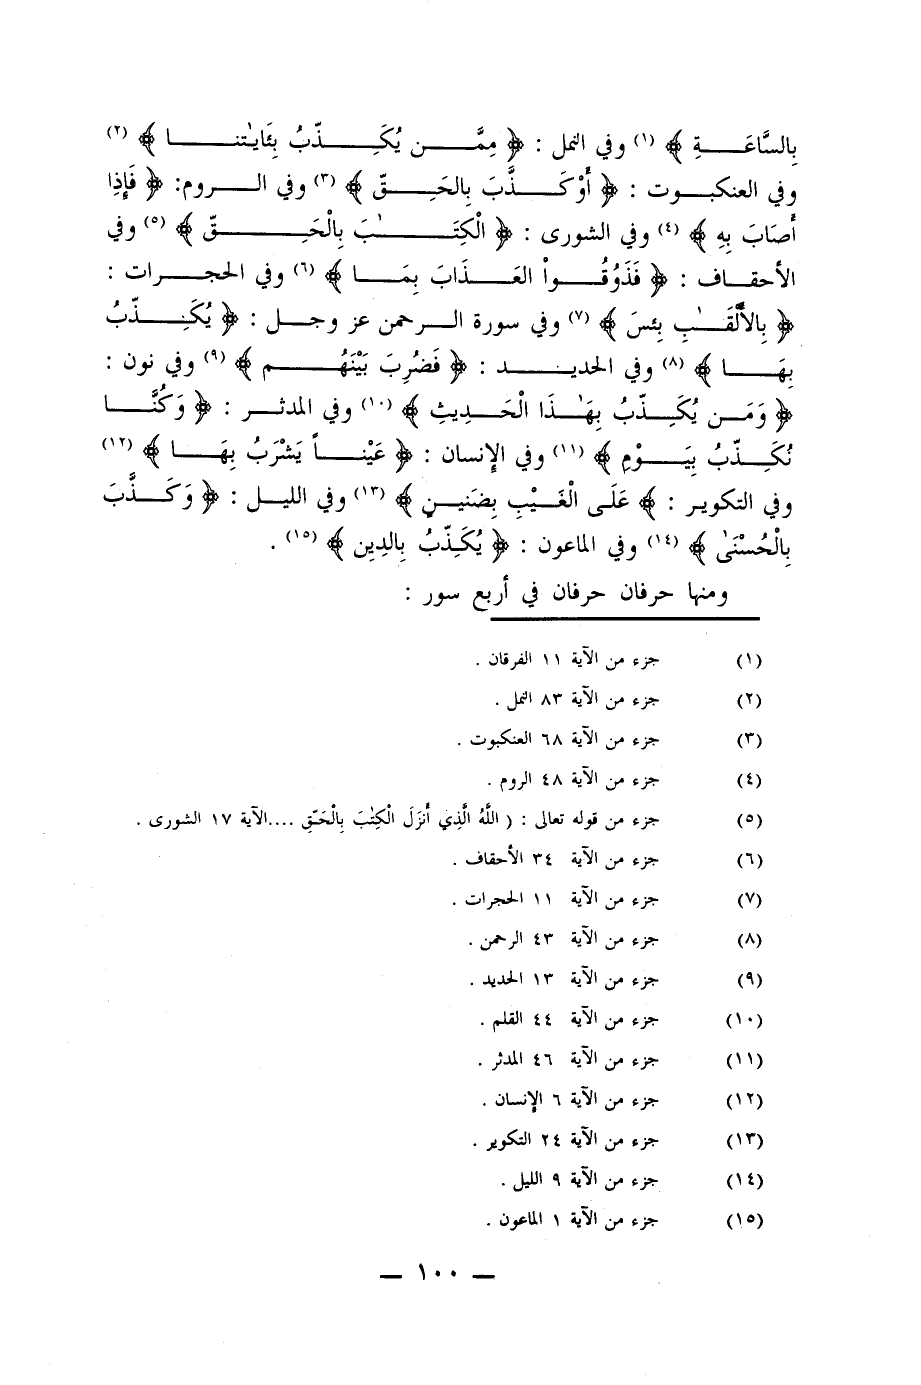 بِالسَّاعَةِ ﴾ (١) وفي النمل : ﴿ مِمَّن يُكَذِّبُ بِئَايَٰتِنَا ﴾ (٢)
وفي العنكبوت : ﴿ أَوْ كَذَّبَ بِالحَقِّ ﴾ (٣) وفي الروم: ﴿ فَإِذَا
أَصَابَ بِهِ ﴾ (٤) وفي الشورى : ﴿ الْكِتَٰبَ بِالْحَقِّ ﴾ (٥) وفي
الأحقاف : ﴿ فَذُوقُواْ العَذَابَ بِمَا ﴾ (٦) وفي الحجرات :
﴿ بِالأَلْقَٰبِ بِئسَ ﴾ (٧) وفي سورة الرحمن عز وجل : ﴿ يُكَذِّبُ
بِهَا ﴾ (٨) وفي الحديد : ﴿ فَضُرِبَ بَيْنَهُم ﴾ (٩) وفي نون :
﴿ وَمَن يُكَذِّبُ بِهَٰذَا الْحَدِيثِ ﴾ (١٠) وفي المدثر : ﴿ وَكُنَّا
نُكَذِّبُ بِيَوْمِ ﴾ (١١) وفي الإنسان : ﴿ عَيْناً يَشْرَبُ بِهَا ﴾ (١٢)
وفي التكوير : ﴾ عَلَى الْغَيْبِ بِضَنِينٍ ﴾ (١٣) وفي الليل : ﴿ وَكَذَّبَ
بِالْحُسْنَىٰ ﴾ (١٤) وفي الماعون : ﴿ يُكَذِّبُ بِالدِينِ ﴾ (١٥) .
ومنها حرفان حرفان في أربع سور :
(١) جزء من الآية ١١ الفرقان .
(٢) جزء من الآية ٨٣ النمل .
(٣) جزء من الآية ٦٨ العنكبوت .
(٤) جزء من الآية ٤٨ الروم .
(٥) جزء من قوله تعالى : ( اللَّهُ الَّذِي أَنزَلَ الْكِتَٰبَ بِالْحَقِّ ....الآية ١٧ الشورى .
(٦) جزء من الآية ٣٤ الأحقاف .
(٧) جزء من الآية ١١ الحجرات .
(٨) جزء من الآية ٤٣ الرحمن .
(٩) جزء من الآية ١٣ الحديد .
(١٠) جزء من الآية ٤٤ القلم .
(١١) جزء من الآية ٤٦ المدثر .
(١٢) جزء من الآية ٦ الإنسان .
(١٣) جزء من الآية ٢٤ التكوير .
(١٤) جزء من الآية ٩ الليل .
(١٥) جزء من الآية ١ الماعون .
— ١٠٠ —